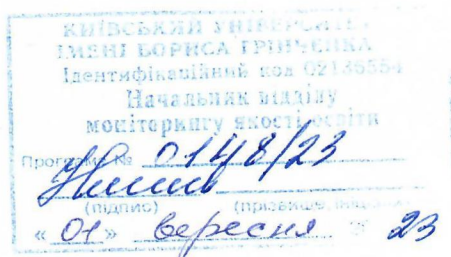 КИЇВСЬКИЙ УНІВЕРСИТЕТ
ІМЕНІ БОРИСА ГРІНЧЕНКА
Ідентифікаційний код 02136554
Начальник відділу
моніторингу якості освіти
Програма № 0148/23
(підпис) (прізвище,
« 01 » вересня 23